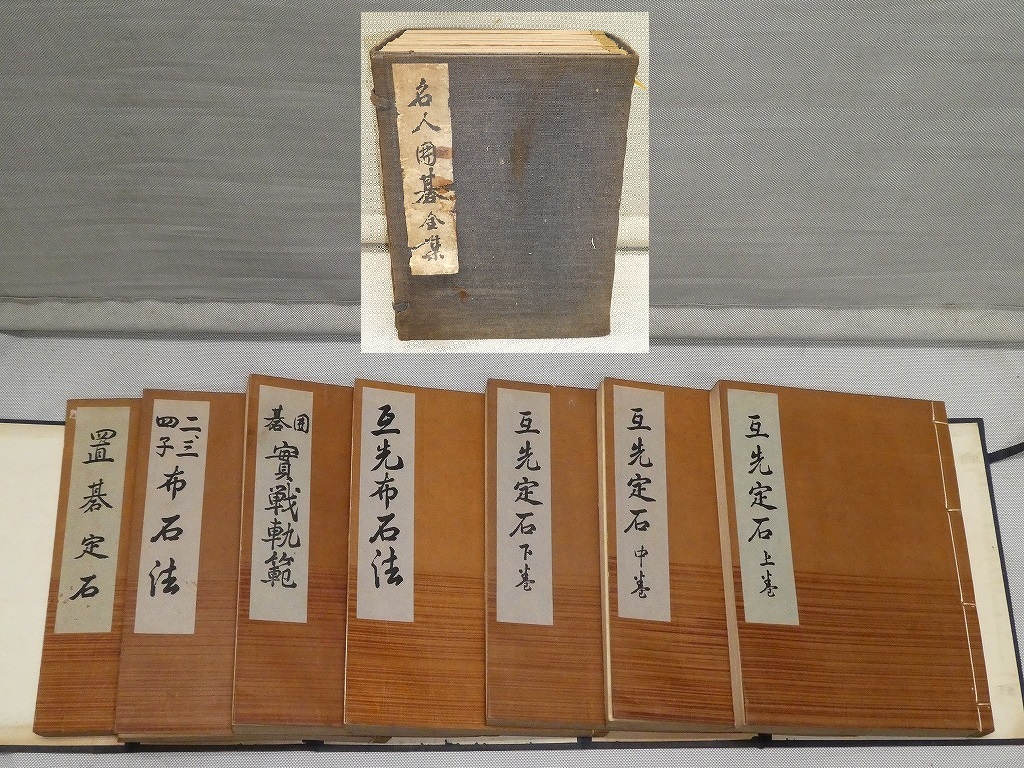 名人囲碁全集
互先定石 上巻
互先定石 中巻
互先定石 下巻
互先布石法
囲碁實戦軌範
二、三四子布石法
置碁定石